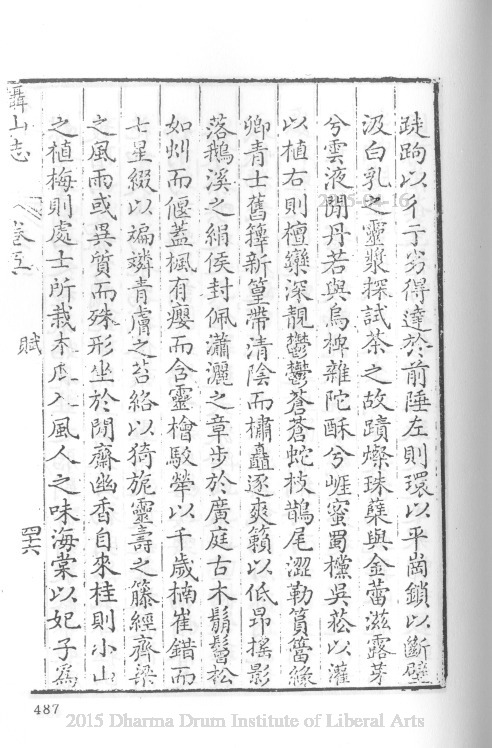 跔以彳亍劣得達於前陲左則環以平崗鎖以斷壁
汲白乳之靈漿探試茶之故蹟燦珠蘖與金蕾滋露芽
兮雲液閒丹若與烏椑雜陀酥兮崕蜜蜀欓吳菘以灌
以植右則檀欒深靚鬱鬱蒼蒼蛇枝鵲尾澀勒篔簹緣
卿青士舊籜新篁帶清陰而橚矗逐爽籟以低昂搖影
落鵝溪之絹侯封佩瀟灑之章步於廣庭古木鬅鬙松
如虬而偃蓋楓有癭而含靈檜駮犖以千歲楠崔錯而
七星綴以斒斕青膚之苔絡以猗旎靈壽之籐經齊梁
之風雨或異質而殊形坐於閒齋幽香自來桂則小山
之植梅則處士所栽木瓜入風人之味海棠以妃子為
聶山志 卷五 賦 四十六
487
2015 Dharma Drum Institute of Liberal Arts